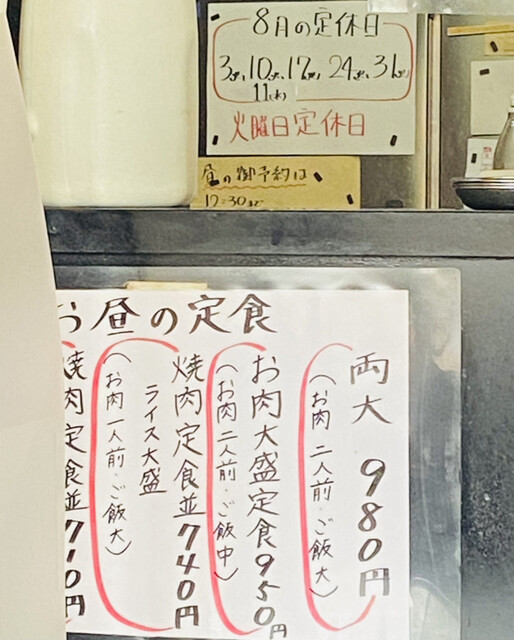 8月の定休日
3(火), 10(火), 17(火), 24(火), 31(火)
11(水)
火曜日定休日
昼の御予約は
12:30まで
お昼の定食
両大 980円
(お肉 二人前・ご飯大)
お肉大盛定食950円
(お肉二人前・ご飯中)
焼肉定食並740円
ライス大盛
(お肉一人前・ご飯大)
焼肉定食並710円